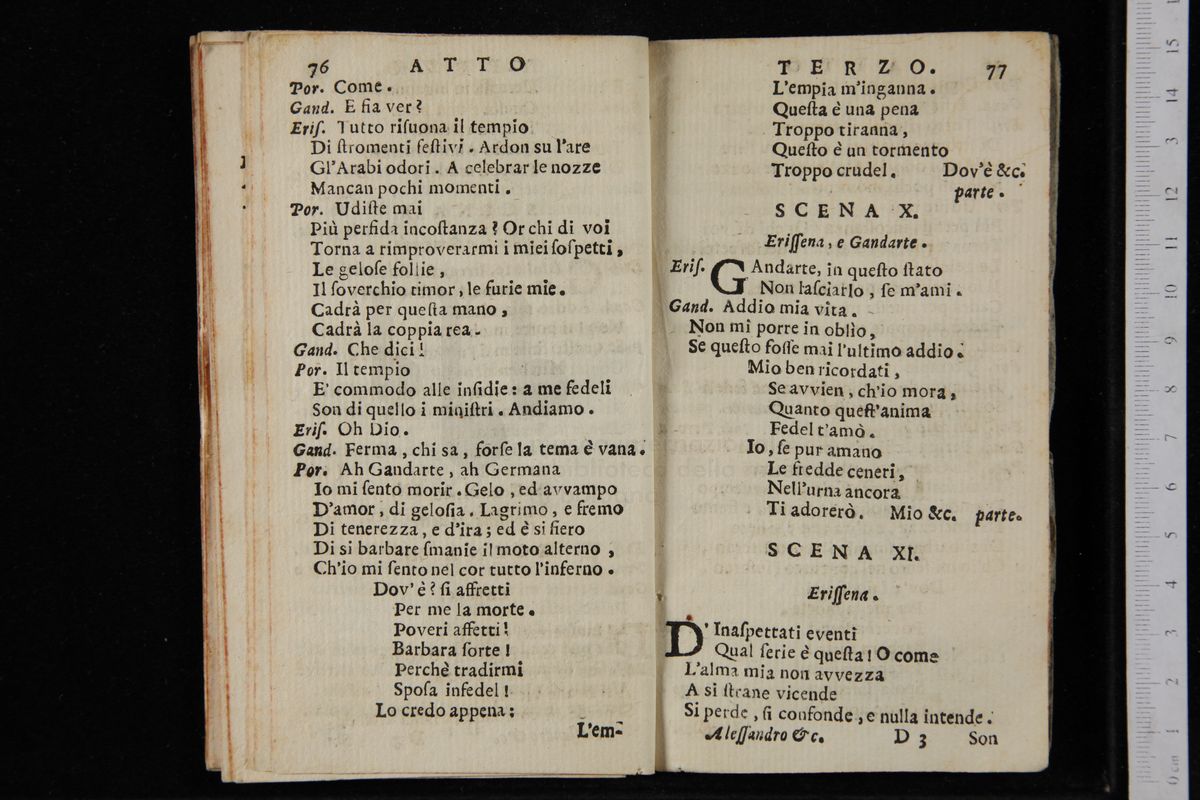 76 ATTO
Por. Come.
Gand. E fia ver?
Eriſ. Tutto riſuona il tempio
Di ſtromenti feſtivi. Ardon su l'are
Gl'Arabi odori. A celebrar le nozze
Mancan pochi momenti.
Por. Udiſte mai
Più perfida incoſtanza? Or chi di voi
Torna a rimproverarmi i miei ſoſpetti,
Le geloſe follie,
Il ſoverchio timor, le furie mie.
Cadrà per queſta mano,
Cadrà la coppia rea.
Gand. Che dici!
Por. Il tempio
E' commodo alle inſidie: a me fedeli
Son di quello i miniſtri. Andiamo.
Eriſ. Oh Dio.
Gand. Ferma, chi sa, forſe la tema è vana.
Por. Ah Gandarte, ah Germana
Io mi ſento morir. Gelo, ed avvampo
D'amor, di geloſia. Lagrimo, e fremo
Di tenerezza, e d'ira; ed è si fiero
Di si barbare ſmanie il moto alterno,
Ch'io mi ſento nel cor tutto l'inferno.
Dov'è? ſi affretti
Per me la morte.
Poveri affetti!
Barbara ſorte!
Perchè tradirmi
Spoſa infedel!
Lo credo appena;
L'em-
TERZO. 77
L'empia m'inganna.
Queſta è una pena
Troppo tiranna,
Queſto è un tormento
Troppo crudel. Dov'è &c.
parte.
SCENA X.
Eriſſena, e Gandarte.
Eriſ. GAndarte, in queſto ſtato
Non laſciarlo, ſe m'ami.
Gand. Addio mia vita.
Non mi porre in oblìo,
Se queſto foſſe mai l'ultimo addio.
Mio ben ricordati,
Se avvien, ch'io mora,
Quanto queſt'anima
Fedel t'amò.
Io, ſe pur amano
Le fredde ceneri,
Nell'urna ancora
Ti adorerò. Mio &c. parte.
SCENA XI.
Eriſſena.
D'Inaſpettati eventi
Qual ſerie è queſta! O come
L'alma mia non avvezza
A si ſtrane vicende
Si perde, ſi confonde, e nulla intende.
Aleſſandro &c. D 3 Son